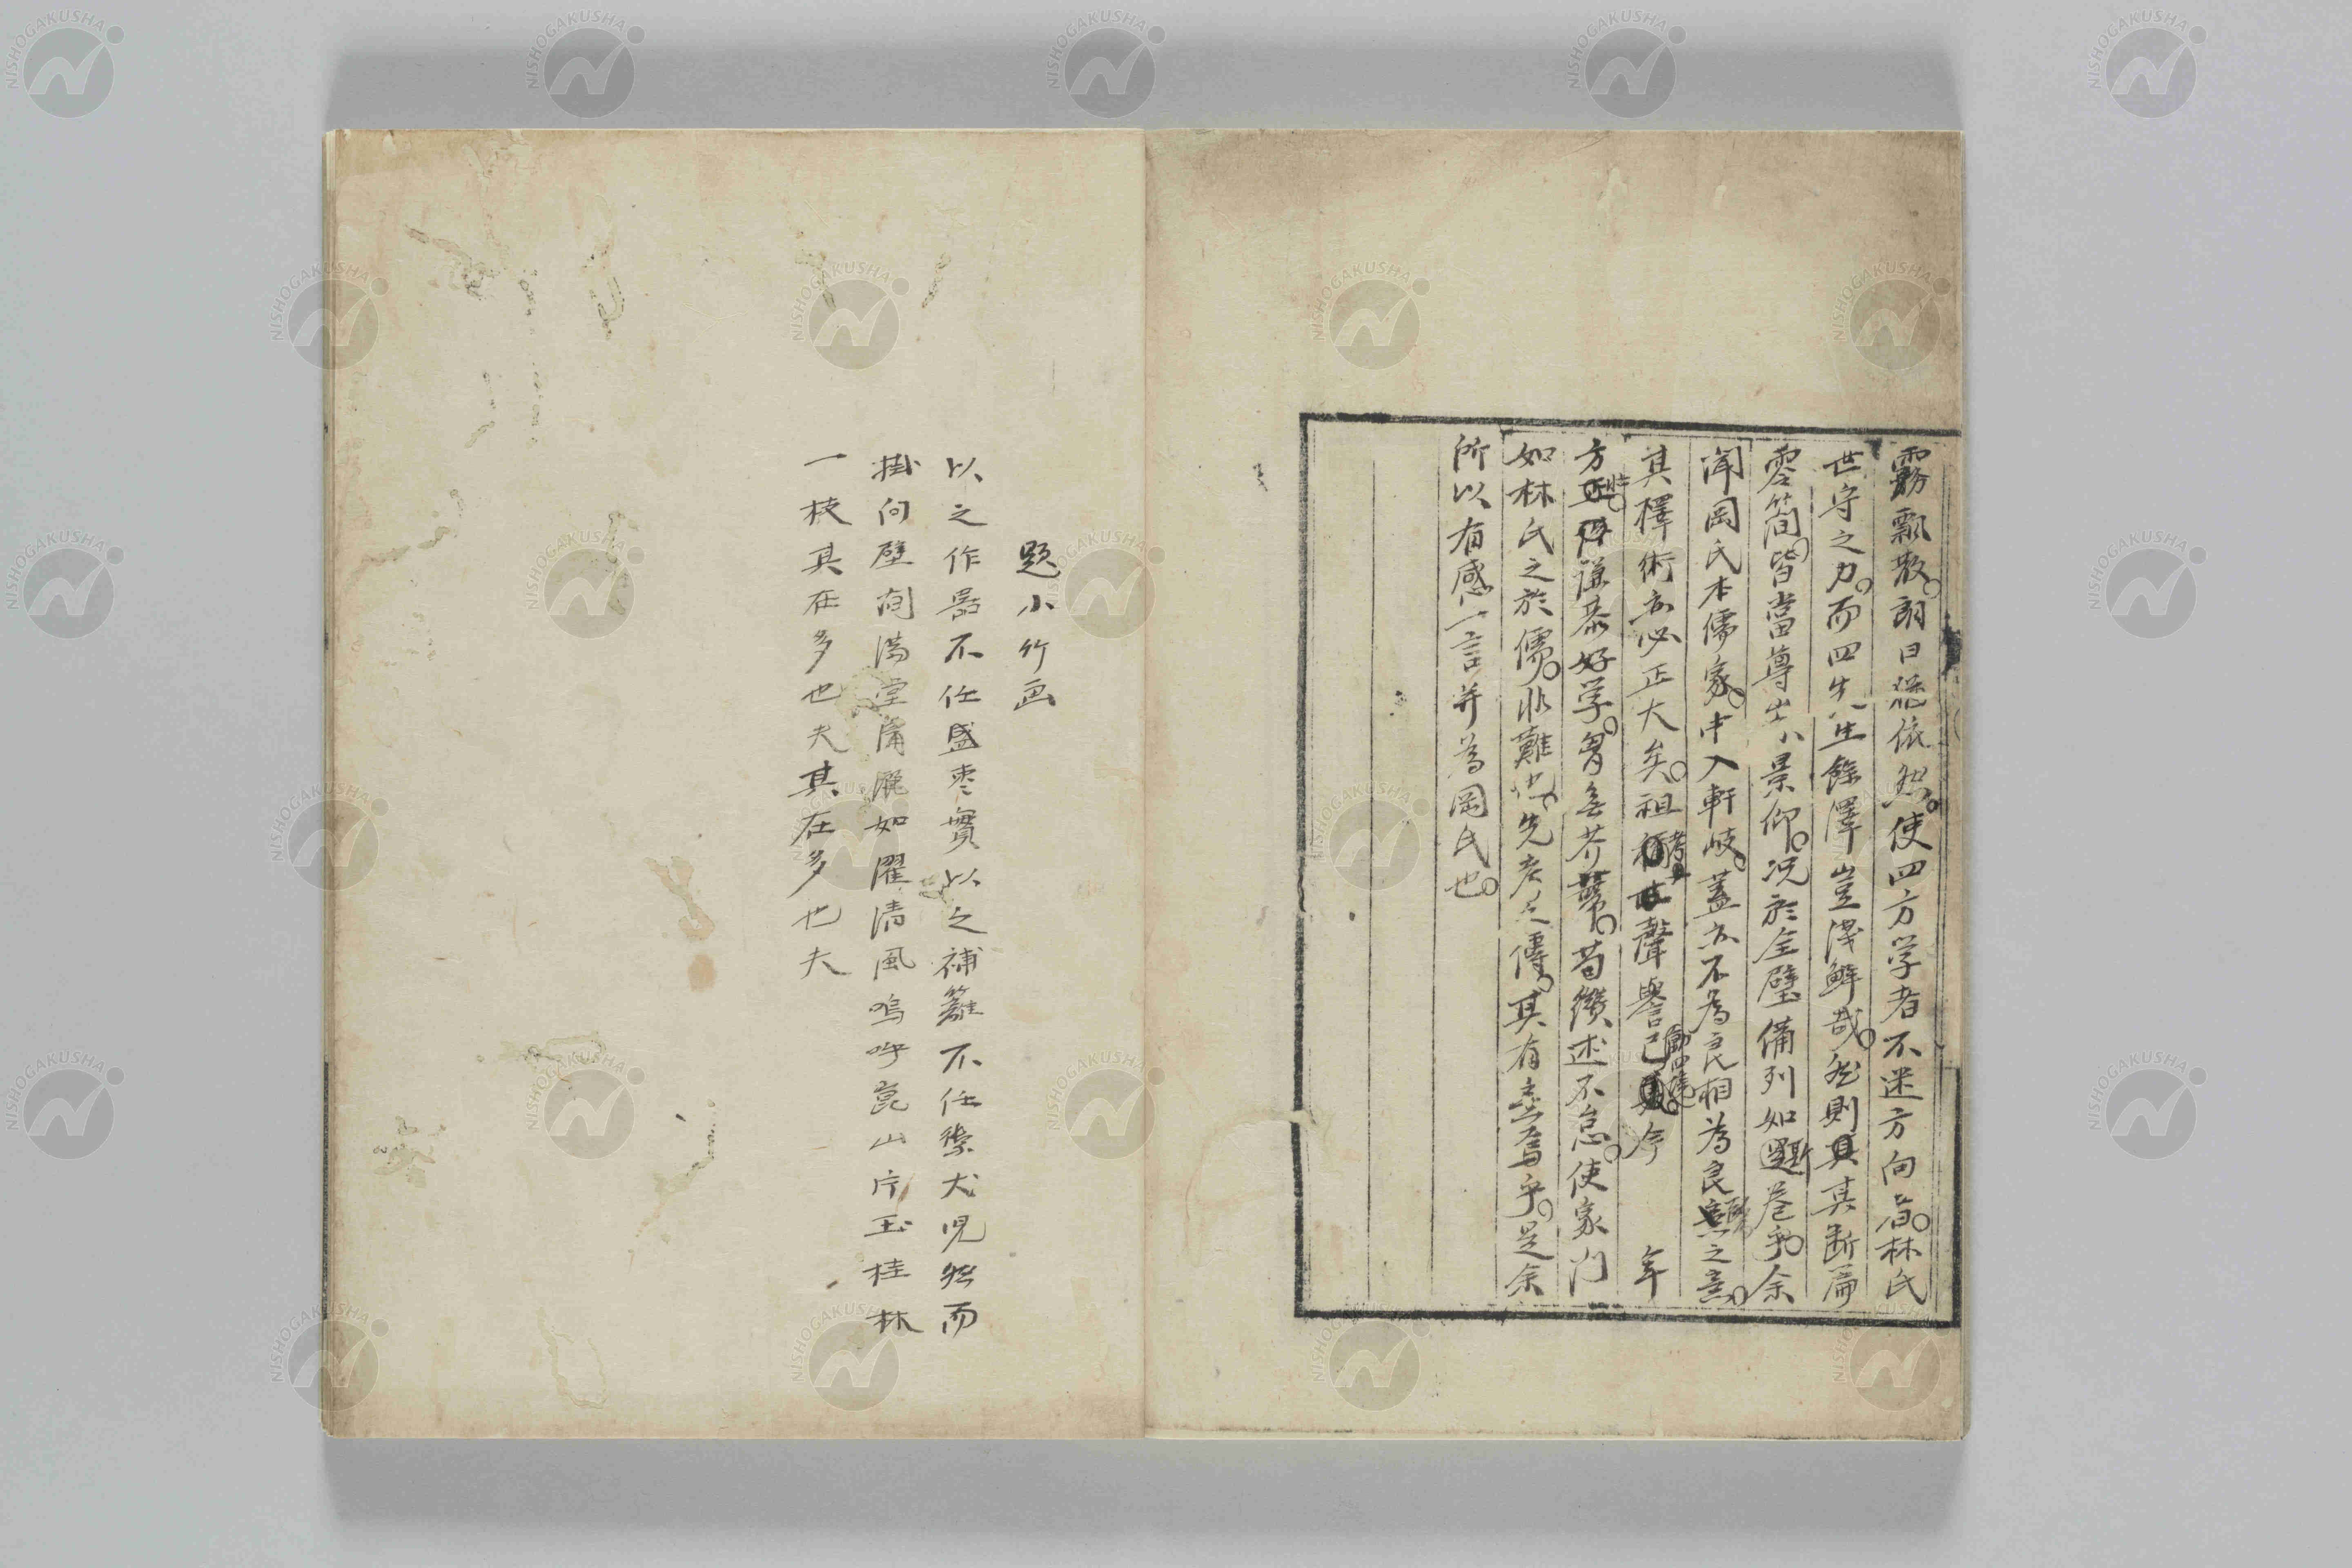 霧飄散。朗日依然。使四方学者不迷方向者。林氏
世守之力。而四先生餘澤豈淺鮮哉。然則其断篇
零簡。皆當尊崇景仰。况於全璧備列如斯巻乎。余
聞岡氏本儒家。中入軒岐。蓋亦不為良相為良醫之意。
其擇術亦必正大矣。祖考聲譽已 今 年
方壮。謙恭好学。胸無芥蔕。苟纘述不怠。使家門
如林氏之於儒。非難也。先考之傳。其有意焉乎。是余
所以有感一言并為岡氏也。
題小竹画
以之作器不任盛棗實以之補籬不任禦犬児然而
掛向壁間満堂瀟灑如濯清風嗚呼崑山片玉桂林
一枝其在多也夫其在多也夫
NISHOGAKUSHA